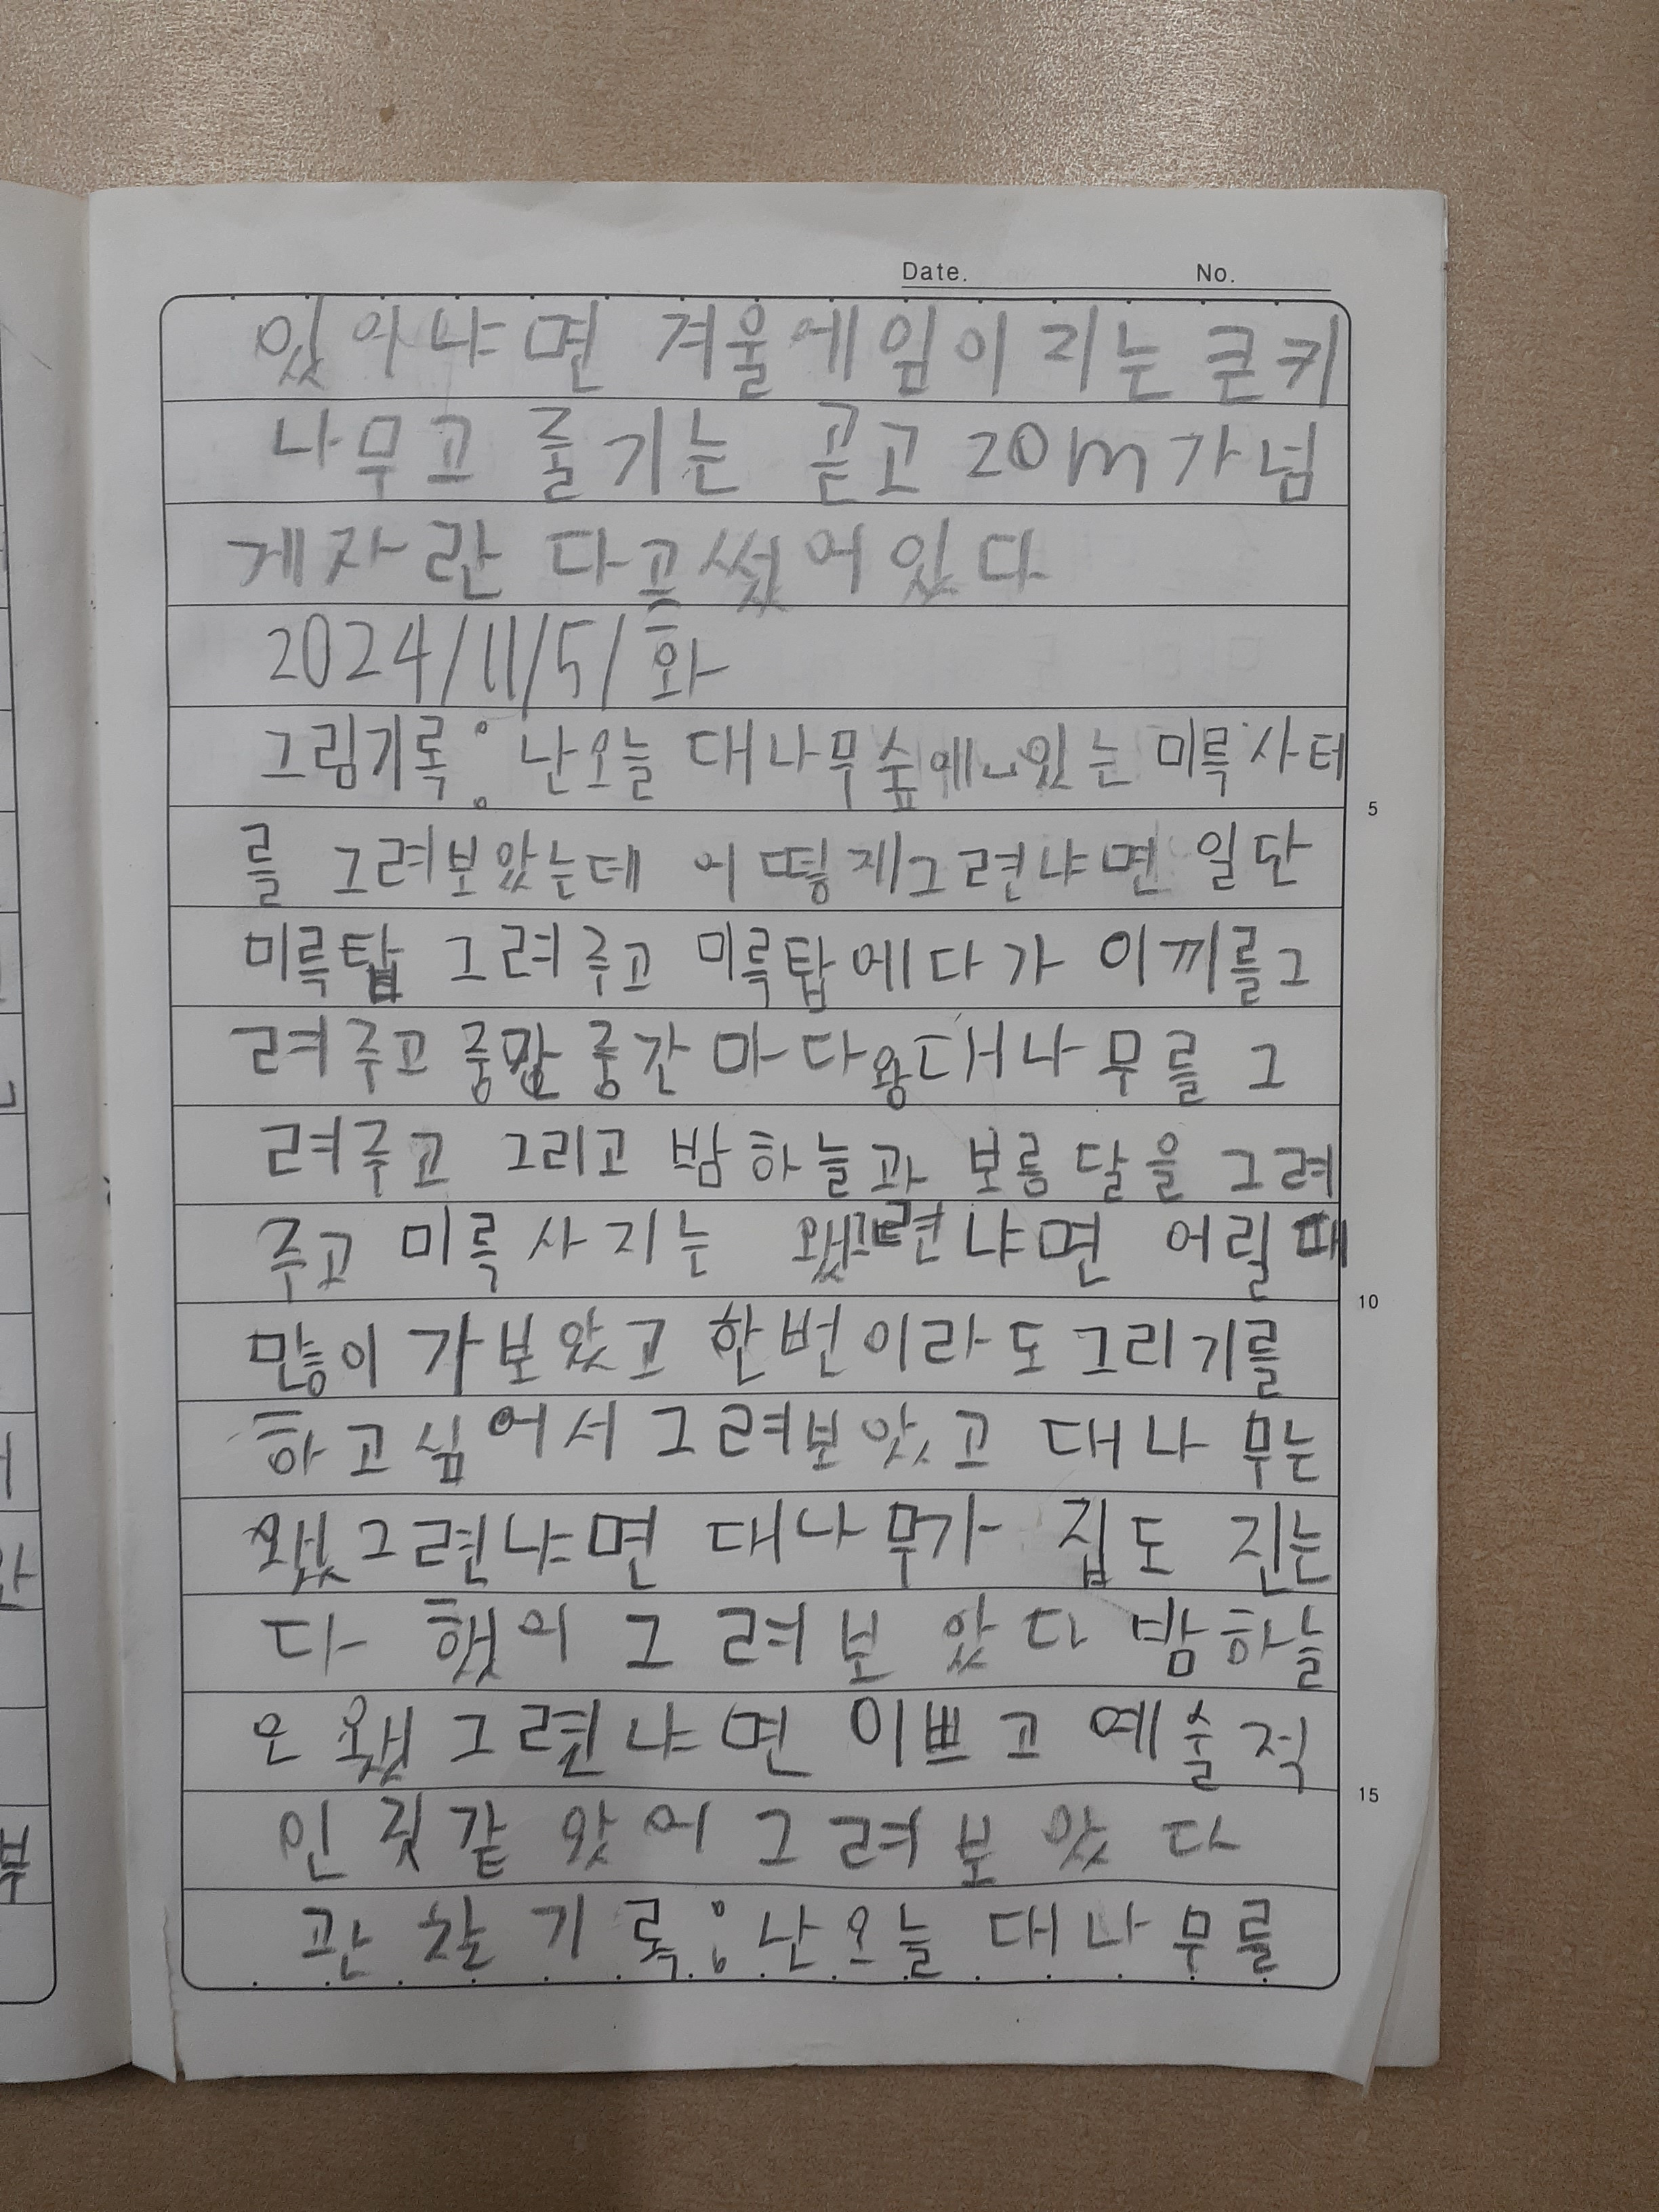 Date. No.
있어냐면 겨울에잎이 지는 큰키
나무고 줄기는 곧고 20m가넘
게자란 다고썼어있다
2024/11/5/화
그림기록: 난오늘 대나무숲에 있는 미륵사터
를 그려보았는데 어떻게그련냐면 일단
미륵탑 그려주고 미륵탑에다가 이끼를그
려주고 중간 중간마다 왕대나무를 그
려주고 그리고 밤하늘과 보름달을 그려
주고 미륵사지는 왰그련냐면 어릴때
많이 가보았고 한번이라도그리기를
하고싶어서그려보았고 대나무는
왰그련냐면 대나무가 집도 진는
다 했어 그려보았다 밤하늘
은 왰그련냐면 이쁘고 예술적
인 것같았어그려보았다
관찰기록: 난오늘 대나무를
5
10
15